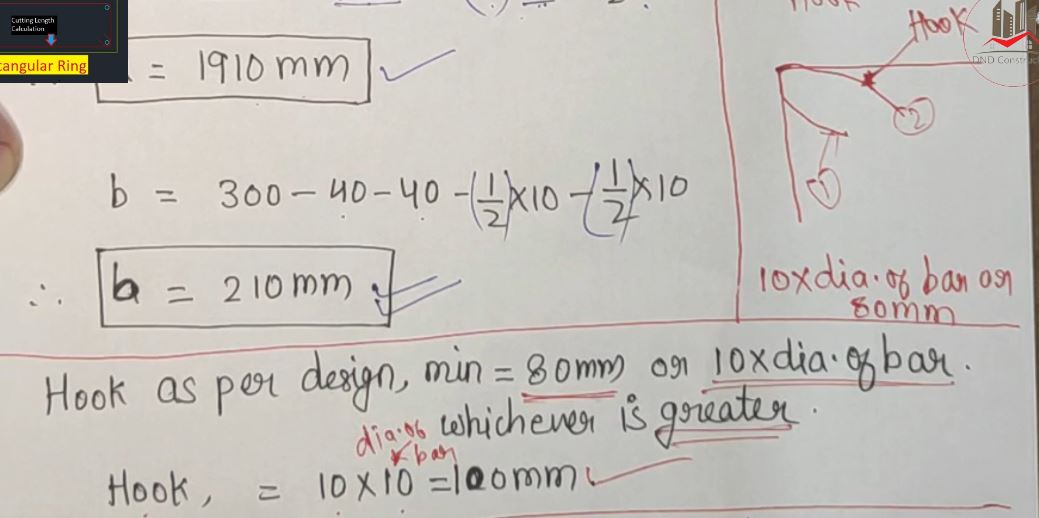 Cutting Length
Calculation
tangular Ring
= 1910 mm
b = 300 - 40 - 40 - (1/2)×10 - (1/2)×10
∴ b = 210 mm
Hook
②
①
10×dia. of bar or
80mm
DND Construc
Hook as per design, min = 80mm or 10×dia. of bar.
whichever is greater.
dia. of
bar
Hook, = 10×10 = 100mm